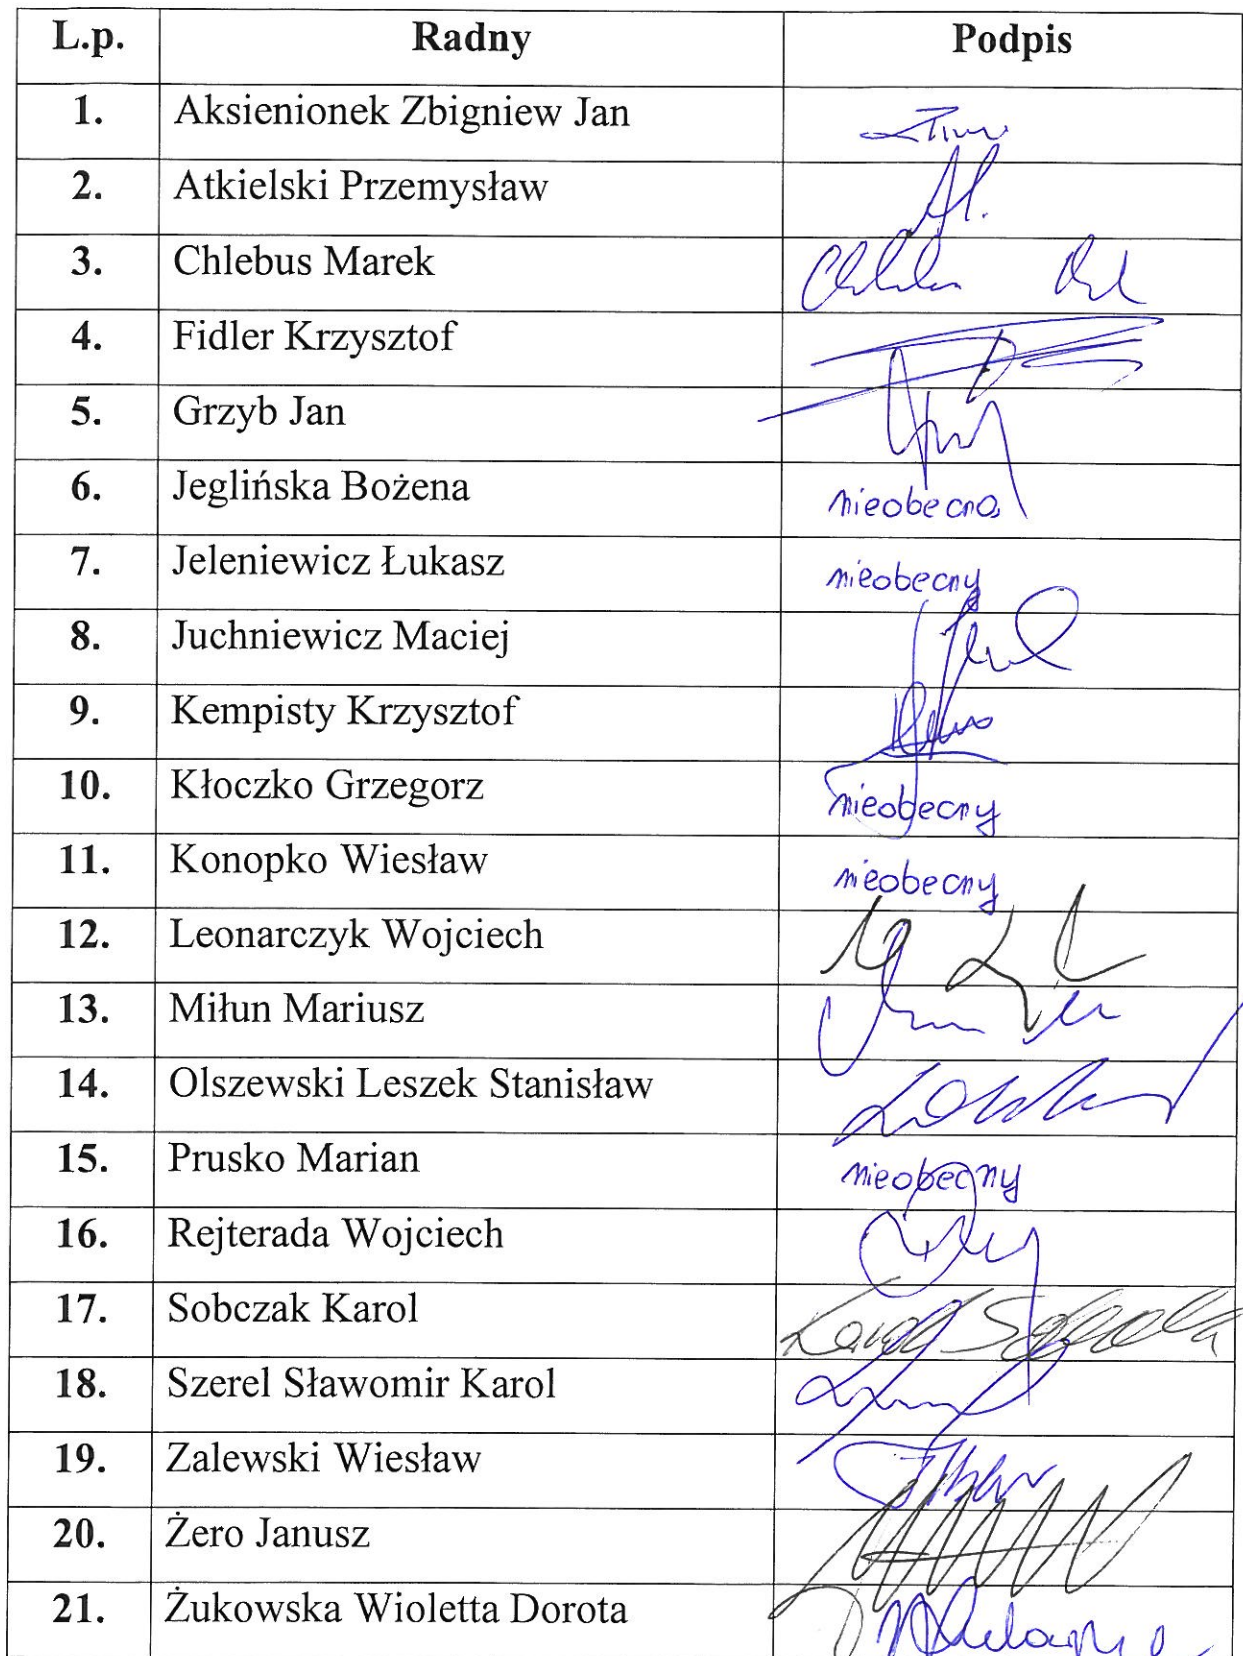 L.p. Radny Podpis
1. Aksienionek Zbigniew Jan
2. Atkielski Przemysław
3. Chlebus Marek
4. Fidler Krzysztof
5. Grzyb Jan
6. Jeglińska Bożena nieobecna
7. Jeleniewicz Łukasz nieobecny
8. Juchniewicz Maciej
9. Kempisty Krzysztof
10. Kłoczko Grzegorz nieobecny
11. Konopko Wiesław nieobecny
12. Leonarczyk Wojciech
13. Miłun Mariusz
14. Olszewski Leszek Stanisław
15. Prusko Marian nieobecny
16. Rejterada Wojciech
17. Sobczak Karol
18. Szerel Sławomir Karol
19. Zalewski Wiesław
20. Żero Janusz
21. Żukowska Wioletta Dorota